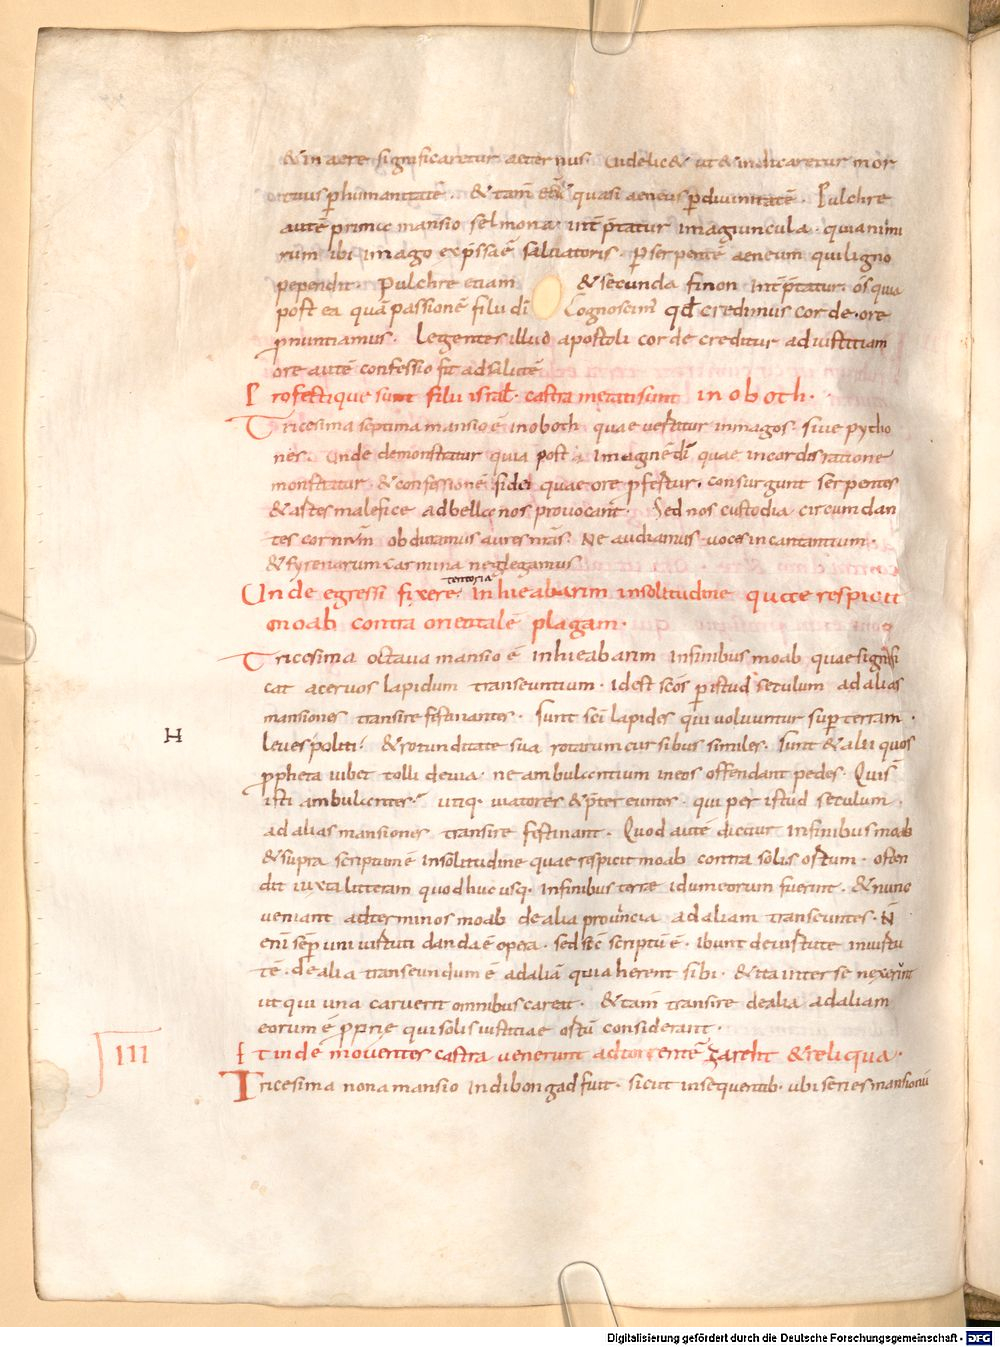 & in aere significaretur aeternus. Videlic& ut & indicaretur mor
tuus phumanitatē. & tam̄ eē quasi aeneus pdiuinitatē. Pulchre
autē prima mansio selmona. int̄p̄tatur imaguncula. quia nimi
rum ibi imago exp̄ssa ē saluatoris. P serpentē aeneum qui ligno
pependit. Pulchre etiam & secunda finon int̄p̄tatur. os quia
post ea quā passionē filii dī Cognoscim; qd credimus corde. ore
pnuntiamus. Legentes illud apostoli corde creditur ad iustitiam
ore autē confessio fit ad salutē
Profectique sunt filii isral. castra metati sunt in oboth.
Tricesima septima mansio ē in oboth quae uertitur in magos. siue pytho
nes. Unde demonstratur quia post imaginē dī quae in cordis ratione
monstratur & confessionē fidei quae ore pfertur. consurgunt serpentes
& artes maleficę ad bella nos prouocant. Sed nos custodia circumdan
tes cor nr̄m obduramus aures nr̄as. Ne audiamus uoces incantantium.
& syrenarum carmina neglegamus
tentoria
Unde egressi fixere in hieabarim in solitudine quae respicit
moab contra orientalē plagam.
Tricesima octaua mansio ē in hieabarim in finibus moab quae signifi
cat aceruos lapidum transeuntium. Id est scōs p istud seculum ad alias
mansiones transire festinantes. Sunt scī lapides qui uoluuntur sup terram.
leues politi. & rotunditate sua rotarum cursibus similes. Sunt & alii quos
ppheta iubet tolli de uia. ne ambulantium in eos offendant pedes. Quis
H
isti ambulantes. utiq. uiatores & p̄tereuntes. qui per istud seculum.
ad alias mansiones transire festinant. Quod autē dicitur in finibus moab
& supra scriptum ē in solitudine quae respicit moab contra solis ortum. osten
dit iuxta litteram quod huc usq. in finibus terrae idumeorum fuerint. & nunc
ueniant ad terminos moab de alia prouincia ad aliam transeuntes. N̄
eni sēp uni uirtuti danda ē opera. sed sic scriptū ē. ibunt de uirtute in uirtu
tē. de alia transeundum ē ad aliā quia herent sibi. & ita inter se nexe sunt
ut qui una caruerit omnibus careat. & tam̄ transire de alia ad aliam
eorum ē pprie qui solis iustitiae ortū considerant.
III
Et inde mouentes castra uenerunt ad torrentē zareht & reliqua.
Tricesima nona mansio in dibongad fuit. sicut in sequentib. ubi series mansionū
Digitalisierung gefördert durch die Deutsche Forschungsgemeinschaft - DFG